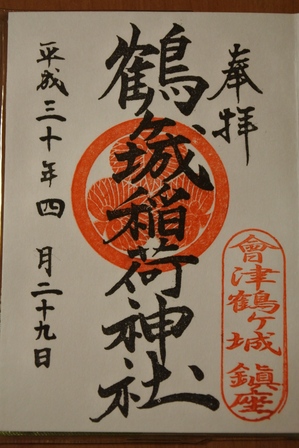 奉拝
鶴ヶ城稲荷神社
會津鶴ヶ城 鎮座
平成三十年四月二十九日